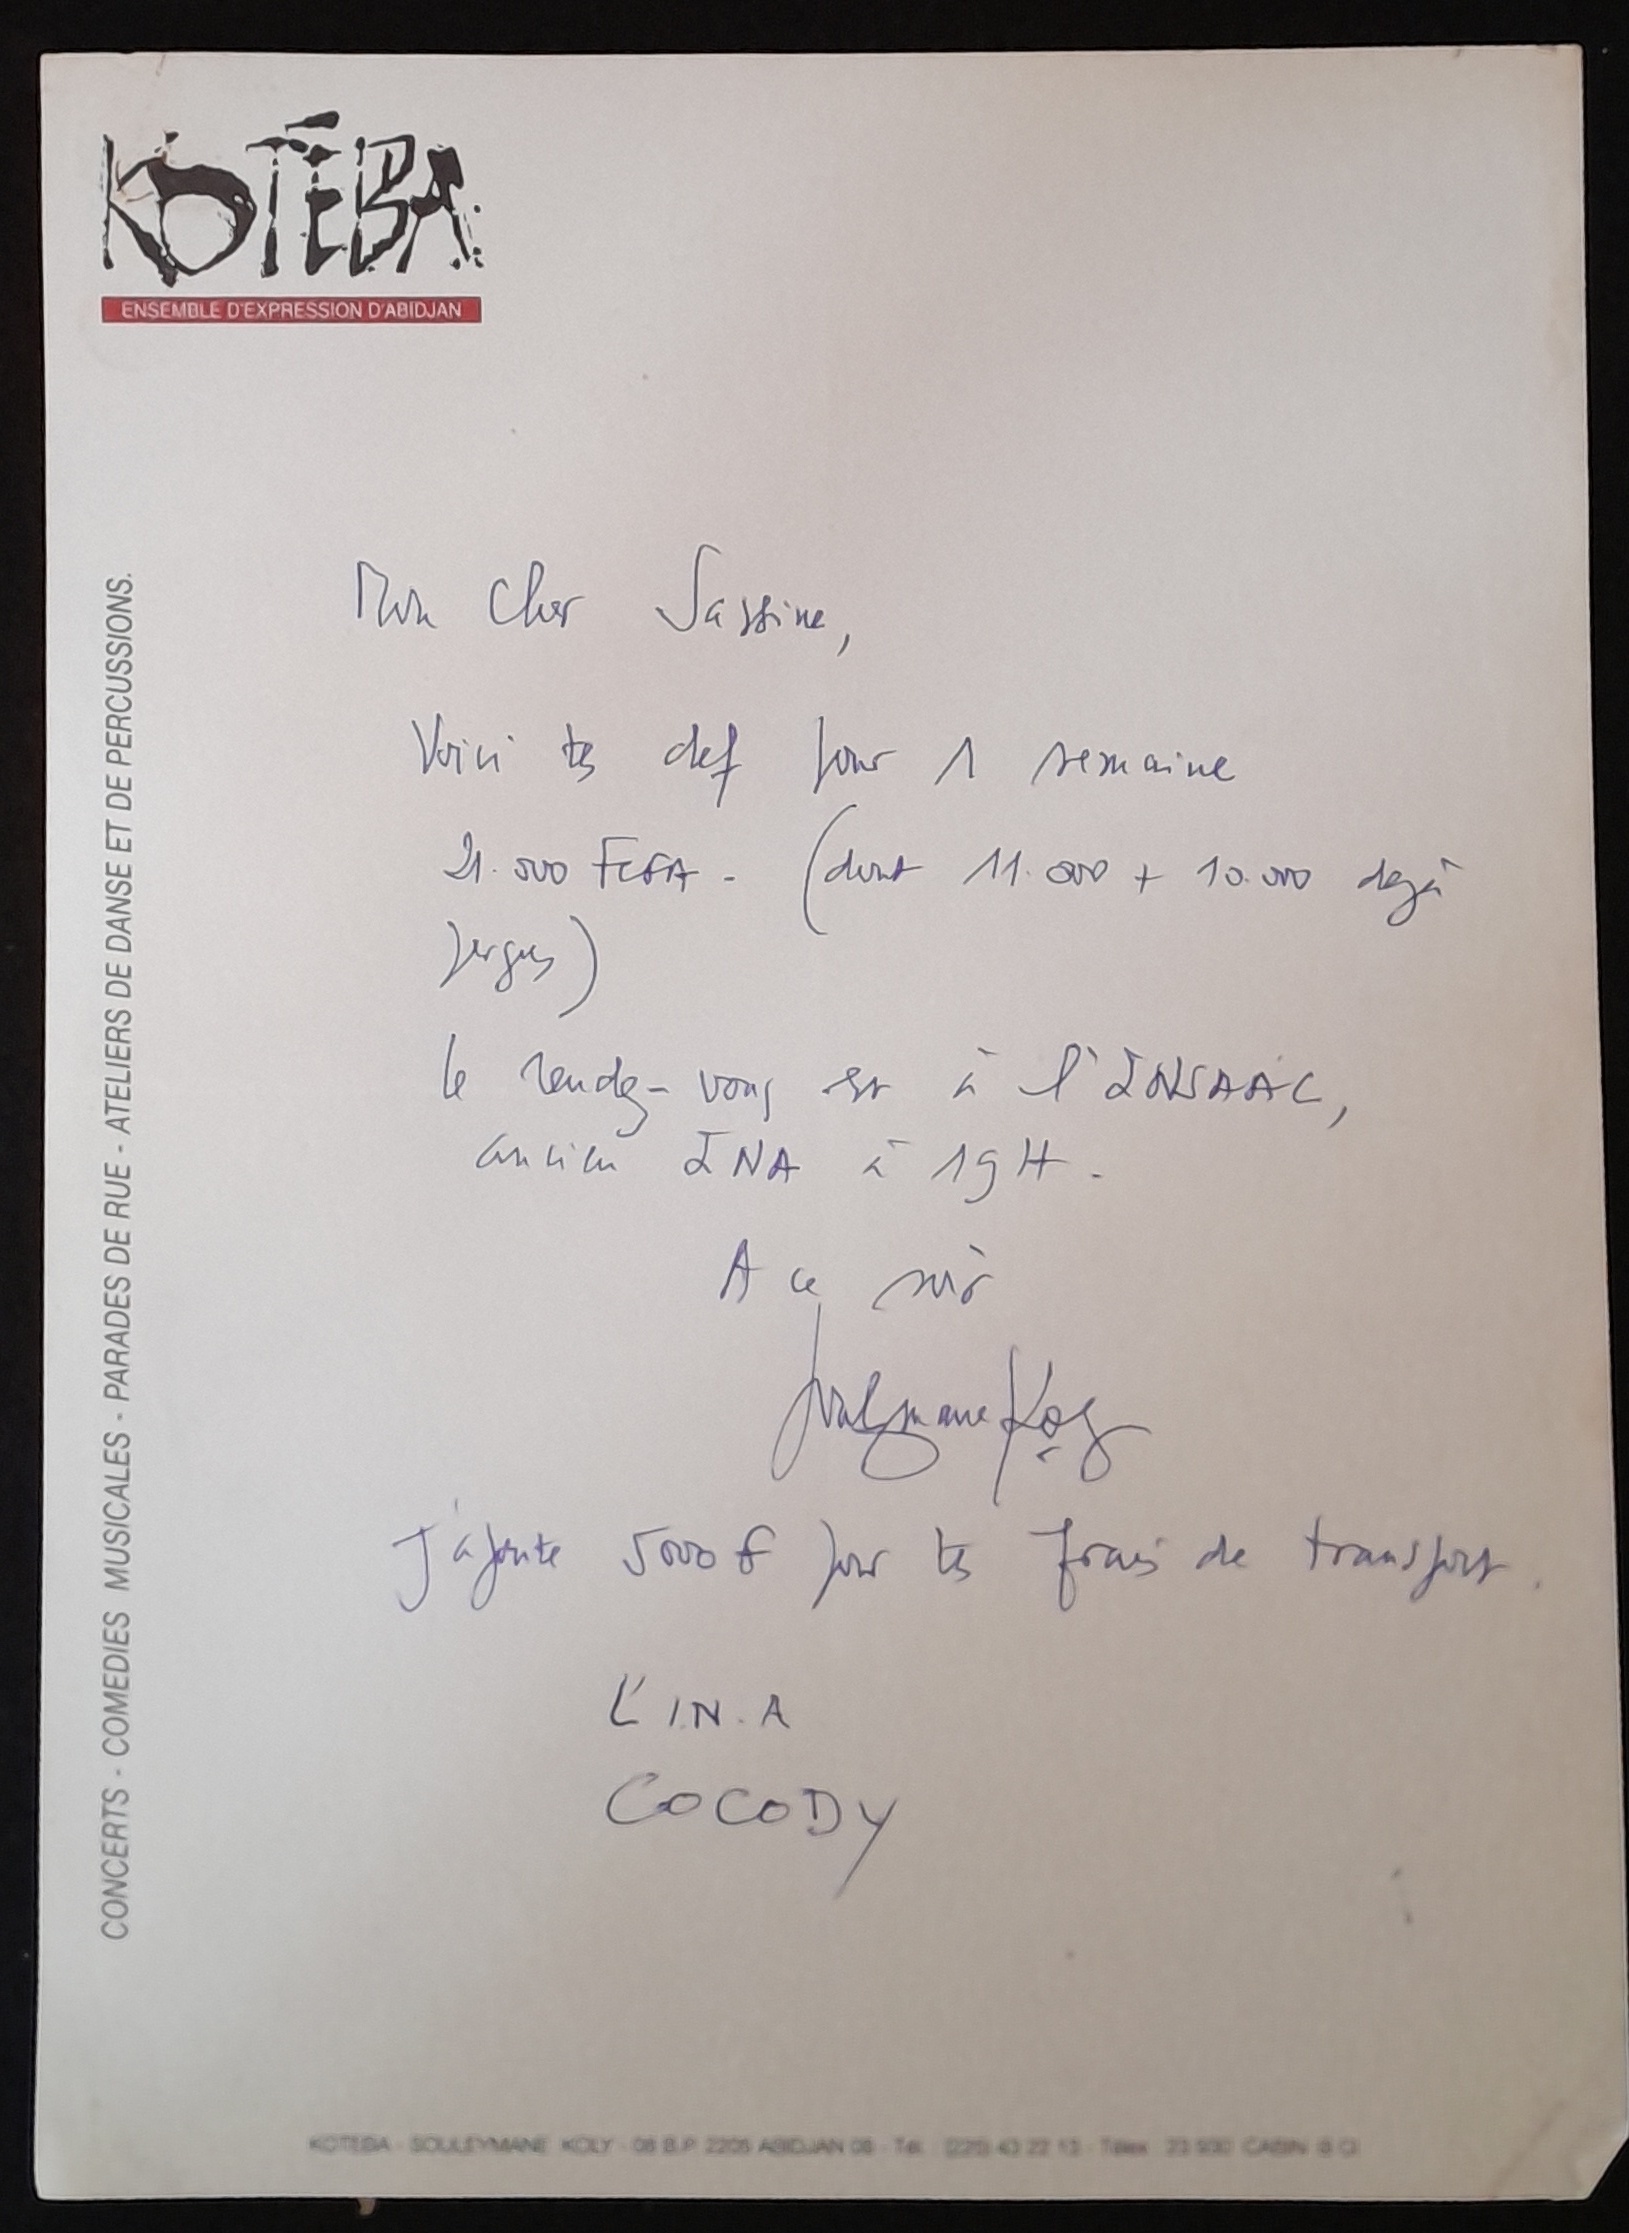 KOTEBA
ENSEMBLE D'EXPRESSION D'ABIDJAN
CONCERTS - COMEDIES MUSICALES - PARADES DE RUE - ATELIERS DE DANSE ET DE PERCUSSIONS.
Mon Cher Sassine,
Voici tes def pour 1 semaine
21.000 FCFA - (dont 11.000 + 10.000 dejà
perçus)
le rendez-vous est à l'INSAAC,
ancien INA à 19H.
A ce soir
Souleymane Koly
J'ajoute 5000f pour tes frais de transport.
L'I.N.A
COCODY
KOTEBA - SOULEYMANE KOLY - 08 B.P. 2205 ABIDJAN 08 - Tél. (225) 43 22 13 - Télex 23 930 CABIN 8 CI